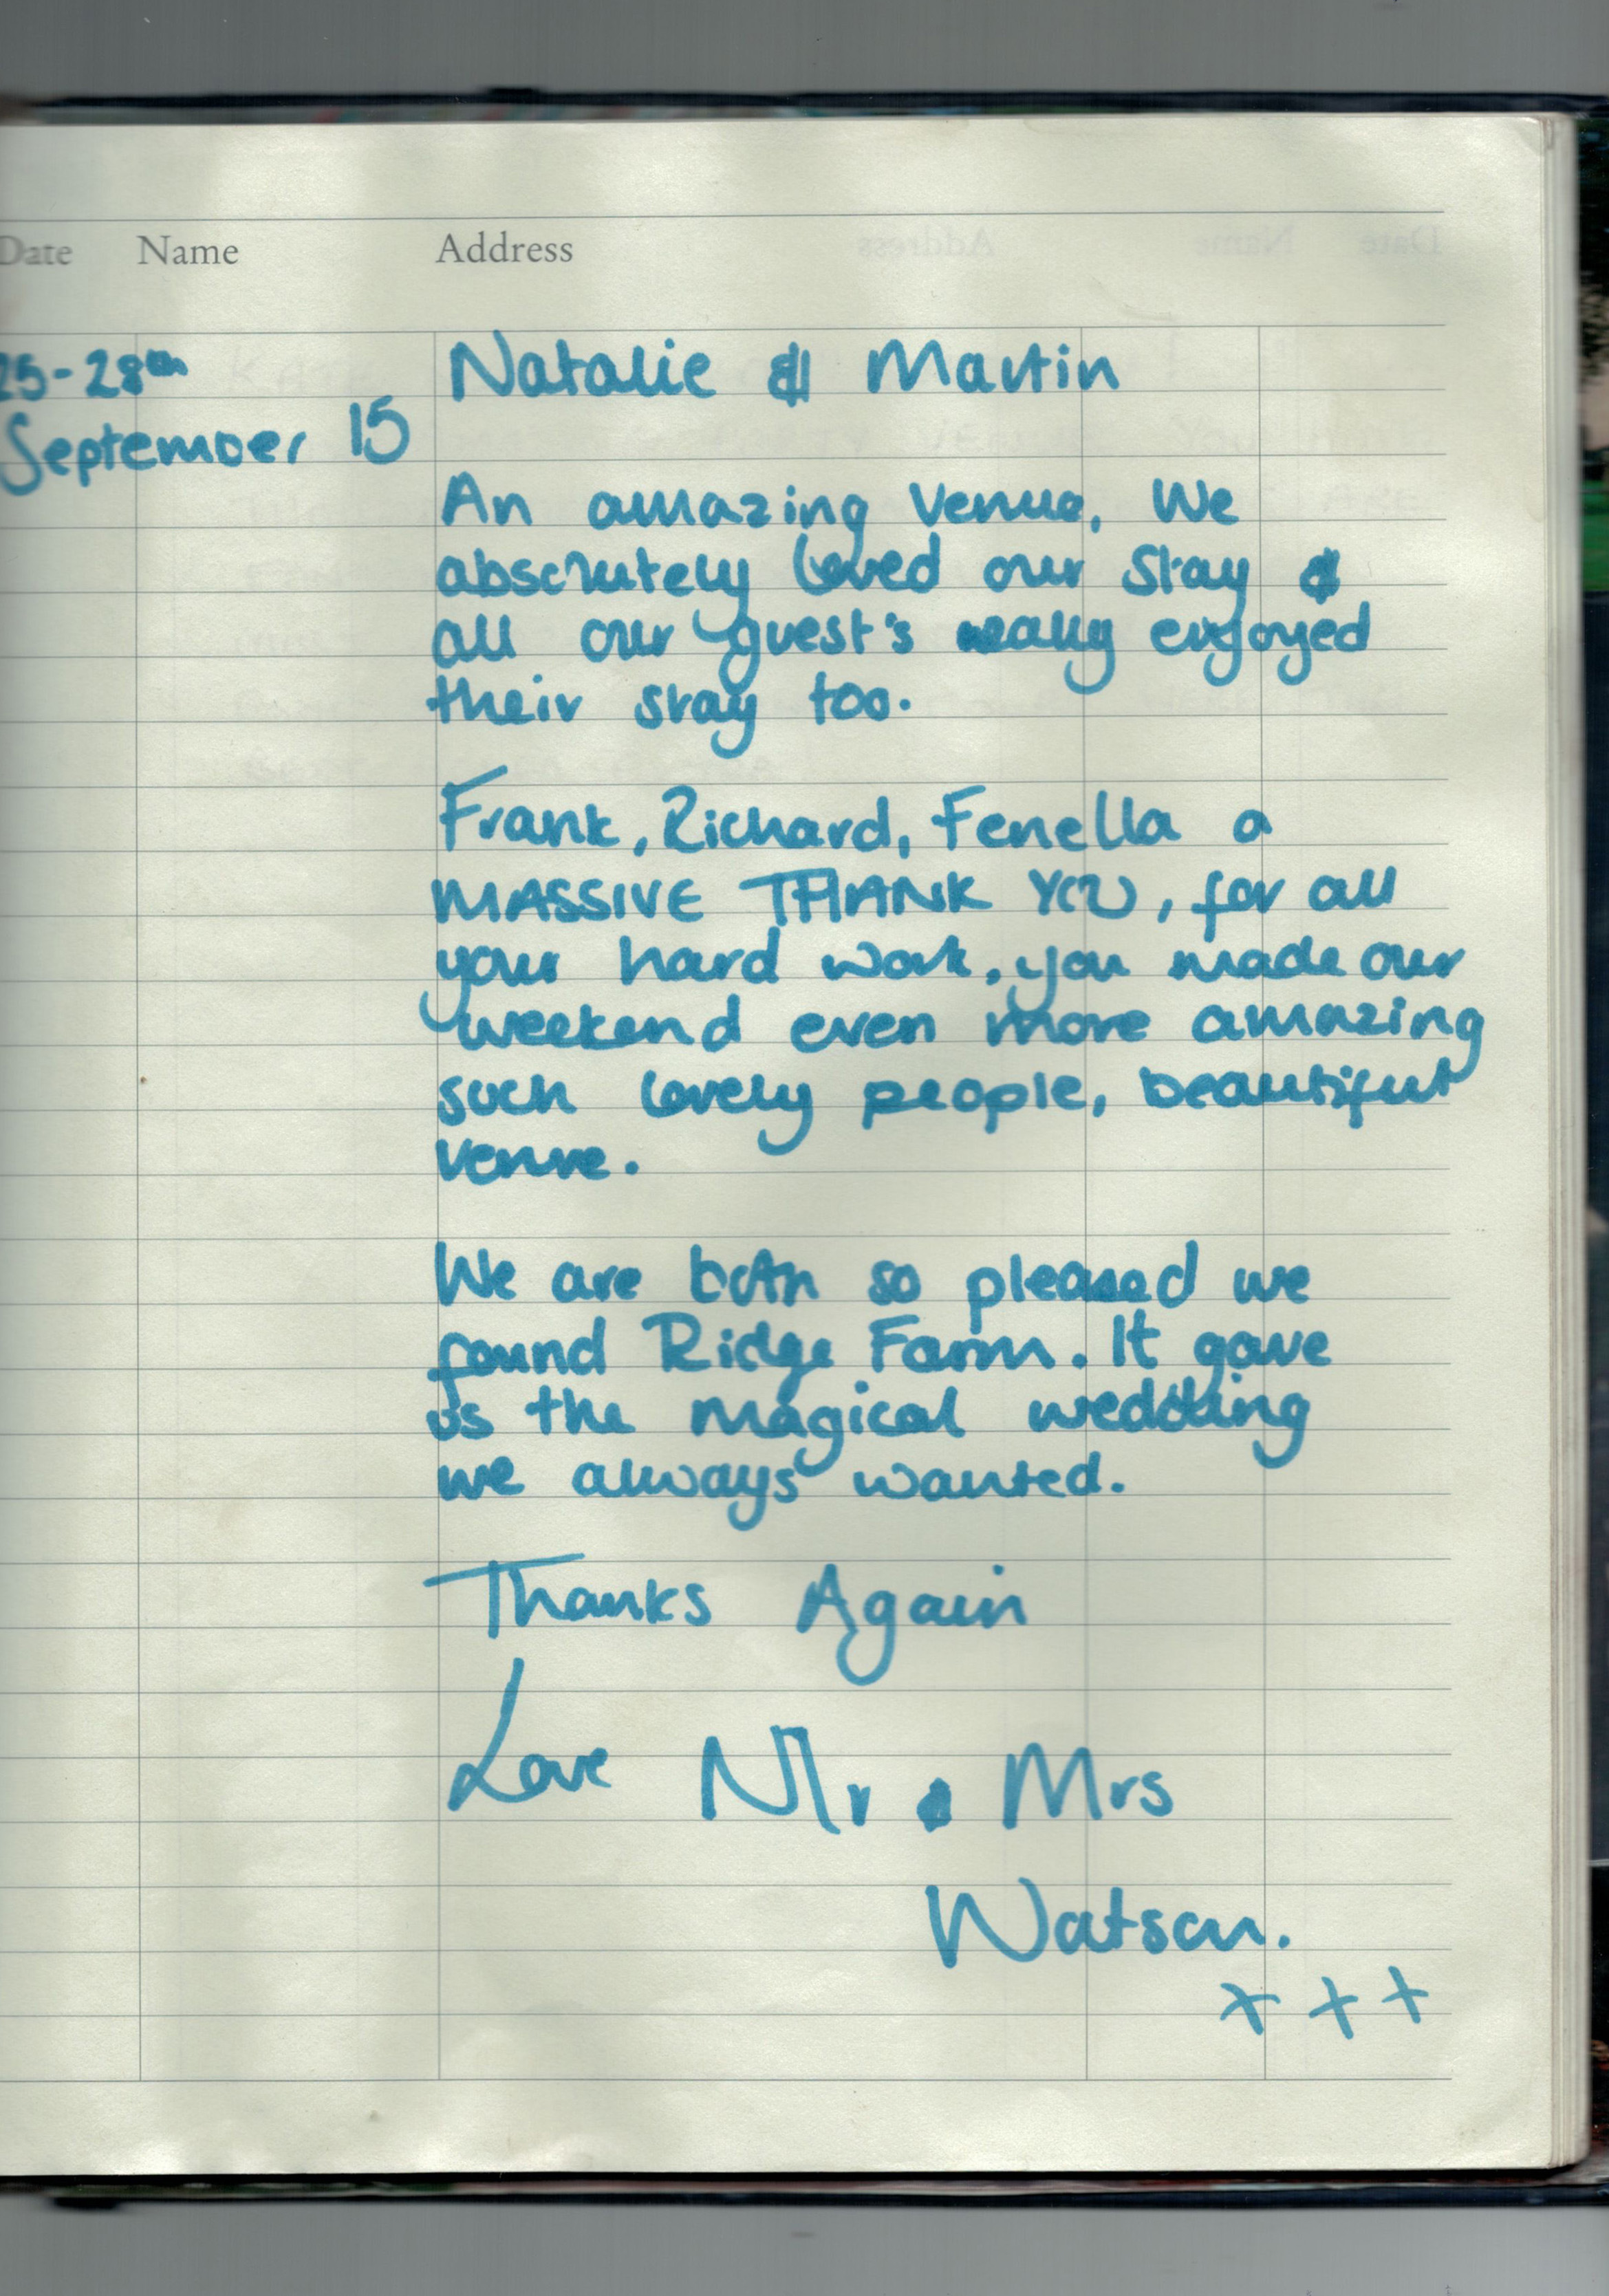 Date Name Address
25-28th
September 15
Natalie & Martin
An amazing venue, We
absolutely loved our stay &
all our guest's really enjoyed
their stay too.
Frank, Richard, Fenella a
MASSIVE THANK YOU, for all
your hard work, you made our
weekend even more amazing
such lovely people, beautiful
venue.
We are both so pleased we
found Ridge Farm. It gave
us the magical wedding
we always wanted.
Thanks Again
Love Mr & Mrs
Watson.
x x x